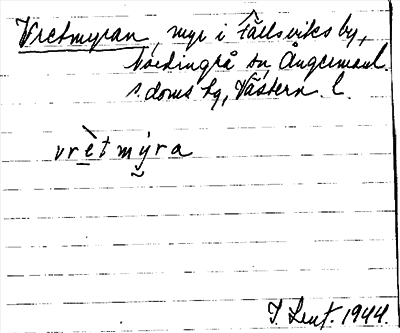 Vretmyran, myr i Fällsviks by,
Nordingrå sn Ångermanl.
s. doms hg, Västern. l.
vrètmýra
1944.